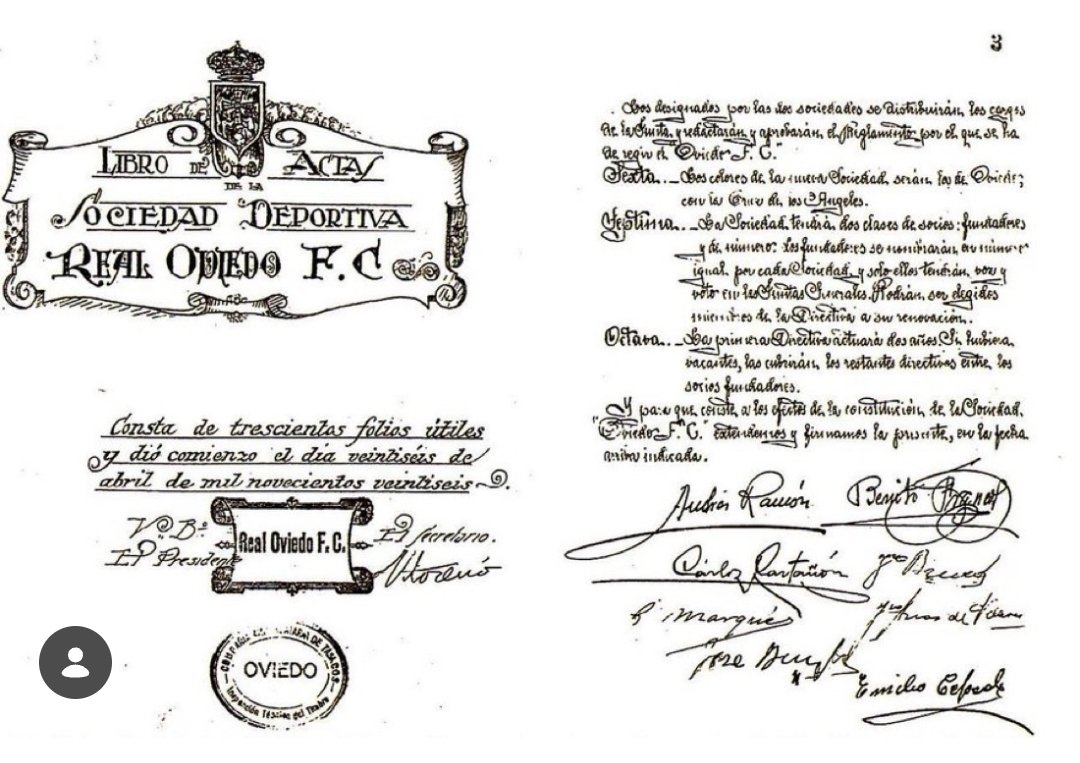 LIBRO DE ACTAS
DE LA
SOCIEDAD DEPORTIVA
REAL OVIEDO F.C
Consta de trescientos folios útiles
y dió comienzo el día veintiséis de
abril de mil novecientos veintiseis.
Vº Bº
El Presidente
Real Oviedo F. C.
El Secretario.
OVIEDO
3
Los designados por las dos sociedades se distribuirán los cargos
de la Junta, y redactarán y aprobarán el Reglamento por el que se ha
de regir el Oviedo F. C."
Sexta.._Los colores de la nueva Sociedad serán los de Oviedo;
con la Cruz de los Angeles.
Septima.._La Sociedad tendrá dos clases de socios: fundadores
y de número: Los fundadores se nombrarán en número
igual por cada Sociedad, y solo ellos tendrán voz y
voto en las Juntas Generales. Podrán ser elegidos
miembros de la Directiva a su renovación.
Octava.._La primera Directiva actuará dos años. Si hubiera
vacantes, las cubrirán los restantes directivos entre los
socios fundadores.
Y para que conste, a los efectos de la constitución de la Sociedad,
"Oviedo F. C." extendemos y firmamos la presente, en la fecha
arriba indicada.
Ramón Benito
Carlos
Marqués
Jose
Emilio